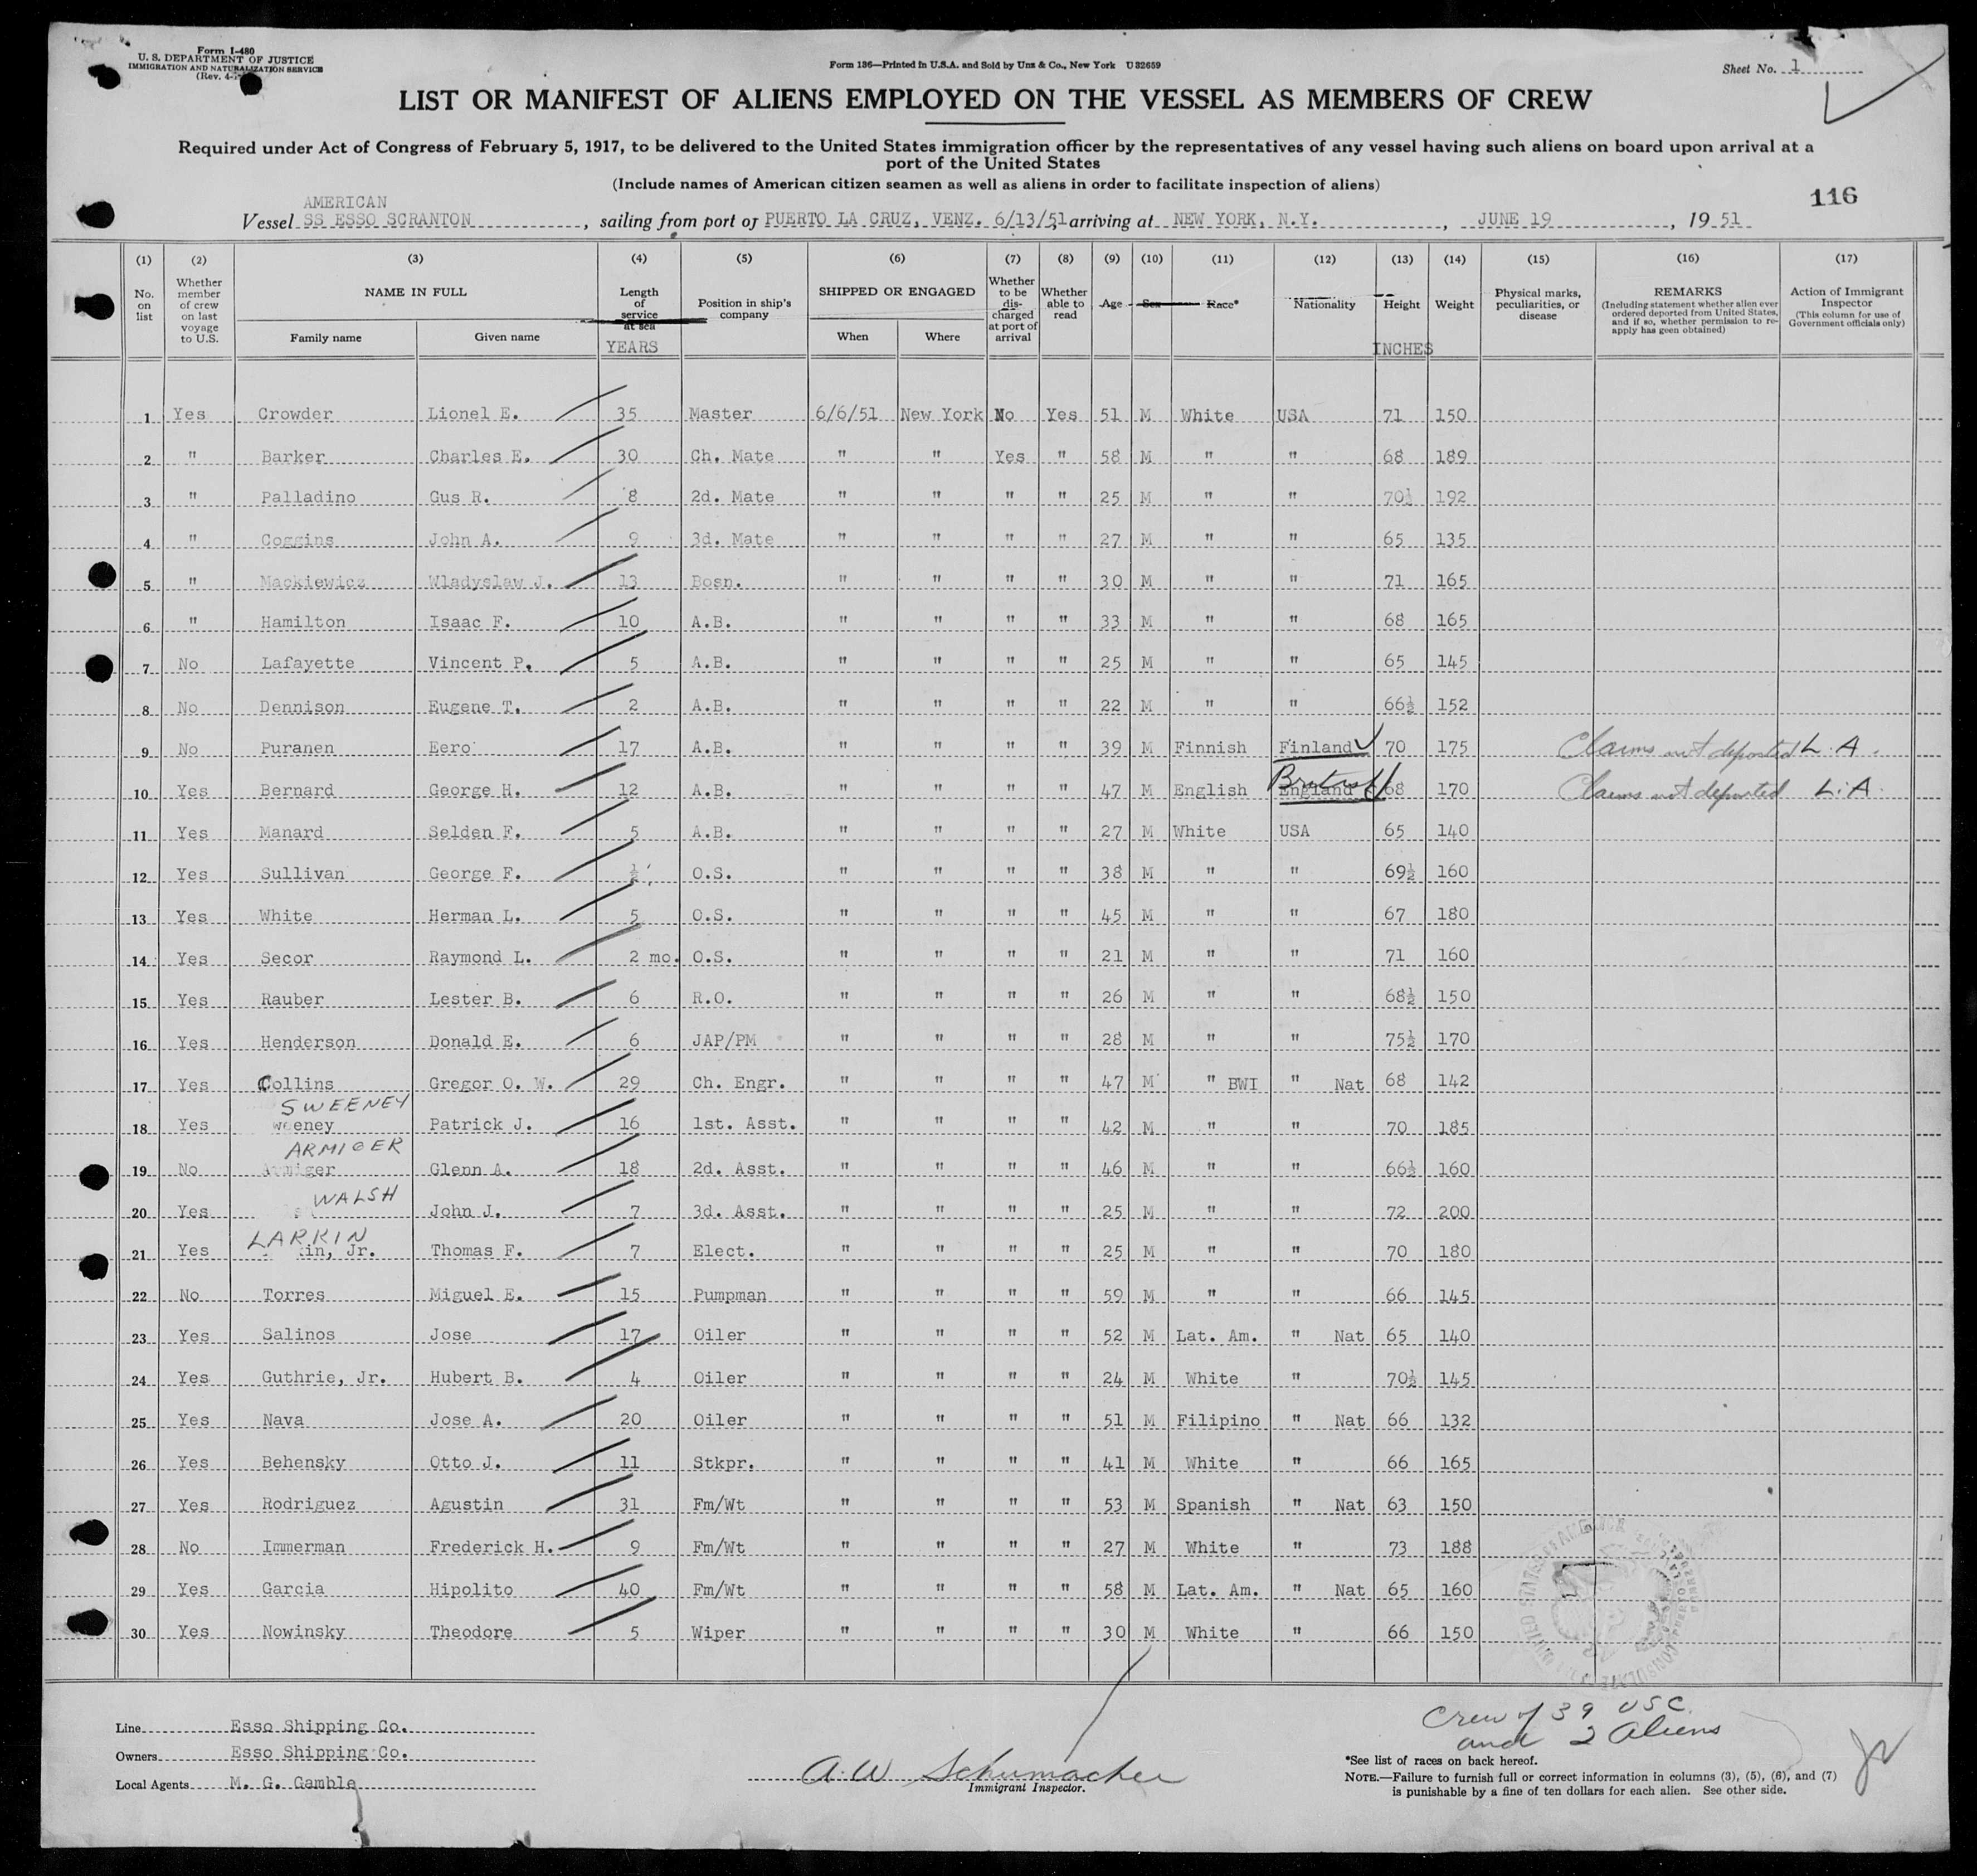 Form I-480
U. S. DEPARTMENT OF JUSTICE
IMMIGRATION AND NATURALIZATION SERVICE
(Rev. 4-
Form 136—Printed in U.S.A. and Sold by Unz & Co., New York U 32659
Sheet No. 1
LIST OR MANIFEST OF ALIENS EMPLOYED ON THE VESSEL AS MEMBERS OF CREW
Required under Act of Congress of February 5, 1917, to be delivered to the United States immigration officer by the representatives of any vessel having such aliens on board upon arrival at a
port of the United States
(Include names of American citizen seamen as well as aliens in order to facilitate inspection of aliens)
116
AMERICAN
Vessel SS ESSO SCRANTON, sailing from port of PUERTO LA CRUZ, VENZ. 6/13/51, arriving at NEW YORK, N.Y., JUNE 19, 1951
(1) (2) (3) (4) (5) (6) (7) (8) (9) (10) (11) (12) (13) (14) (15) (16) (17)
No. on list
Whether member of crew on last voyage to U.S.
NAME IN FULL
Family name Given name
Length of service at sea
YEARS
Position in ship's company
SHIPPED OR ENGAGED
When Where
Whether to be discharged at port of arrival
Whether able to read
Age Sex Race* Nationality Height Weight
INCHES
Physical marks, peculiarities, or disease
REMARKS
(Including statement whether alien ever ordered deported from United States, and if so, whether permission to re-apply has been obtained)
Action of Immigrant Inspector
(This column for use of Government officials only)
1 Yes Crowder Lionel E. 35 Master 6/6/51 New York No Yes 51 M White USA 71 150
2 " Barker Charles E. 30 Ch. Mate " " Yes " 58 M " " 68 189
3 " Palladino Gus R. 8 2d. Mate " " " " 25 M " " 70½ 192
4 " Coggins John A. 9 3d. Mate " " " " 27 M " " 65 135
5 " Mackiewicz Wladyslaw J. 13 Bosn. " " " " 30 M " " 71 165
6 " Hamilton Isaac F. 10 A.B. " " " " 33 M " " 68 165
7 No Lafayette Vincent P. 5 A.B. " " " " 25 M " " 65 145
8 No Dennison Eugene T. 2 A.B. " " " " 22 M " " 66½ 152
9 No Puranen Eero 17 A.B. " " " " 39 M Finnish Finland 70 175 Claims not deported L.A.
10 Yes Bernard George H. 12 A.B. " " " " 47 M English England British 68 170 Claims not deported L.A.
11 Yes Manard Selden F. 5 A.B. " " " " 27 M White USA 65 140
12 Yes Sullivan George F. ½ O.S. " " " " 38 M " " 69½ 160
13 Yes White Herman L. 5 O.S. " " " " 45 M " " 67 180
14 Yes Secor Raymond L. 2 mo. O.S. " " " " 21 M " " 71 160
15 Yes Rauber Lester B. 6 R.O. " " " " 26 M " " 68½ 150
16 Yes Henderson Donald E. 6 JAP/PM " " " " 28 M " " 75½ 170
17 Yes Collins Gregor O. W. 29 Ch. Engr. " " " " 47 M " BWI " Nat 68 142
SWEENEY
18 Yes weeney Patrick J. 16 1st. Asst. " " " " 42 M " " 70 185
ARMIGER
19 No Armiger Glenn A. 18 2d. Asst. " " " " 46 M " " 66½ 160
WALSH
20 Yes John J. 7 3d. Asst. " " " " 25 M " " 72 200
LARKIN
21 Yes kin, Jr. Thomas F. 7 Elect. " " " " 25 M " " 70 180
22 No Torres Miguel E. 15 Pumpman " " " " 59 M " " 66 145
23 Yes Salinos Jose 17 Oiler " " " " 52 M Lat. Am. " Nat 65 140
24 Yes Guthrie, Jr. Hubert B. 4 Oiler " " " " 24 M White " 70½ 145
25 Yes Nava Jose A. 20 Oiler " " " " 51 M Filipino " Nat 66 132
26 Yes Behensky Otto J. 11 Stkpr. " " " " 41 M White " 66 165
27 Yes Rodriguez Agustin 31 Fm/Wt " " " " 53 M Spanish " Nat 63 150
28 No Immerman Frederick H. 9 Fm/Wt " " " " 27 M White " 73 188
29 Yes Garcia Hipolito 40 Fm/Wt " " " " 58 M Lat. Am. " Nat 65 160
30 Yes Nowinsky Theodore 5 Wiper " " " " 30 M White " 66 150
Crew of 39 USC.
and 2 Aliens
Line Esso Shipping Co.
Owners Esso Shipping Co.
Local Agents M. G. Gamble
A.W Schumacher
Immigrant Inspector.
*See list of races on back hereof.
NOTE.—Failure to furnish full or correct information in columns (3), (5), (6), and (7)
is punishable by a fine of ten dollars for each alien. See other side.